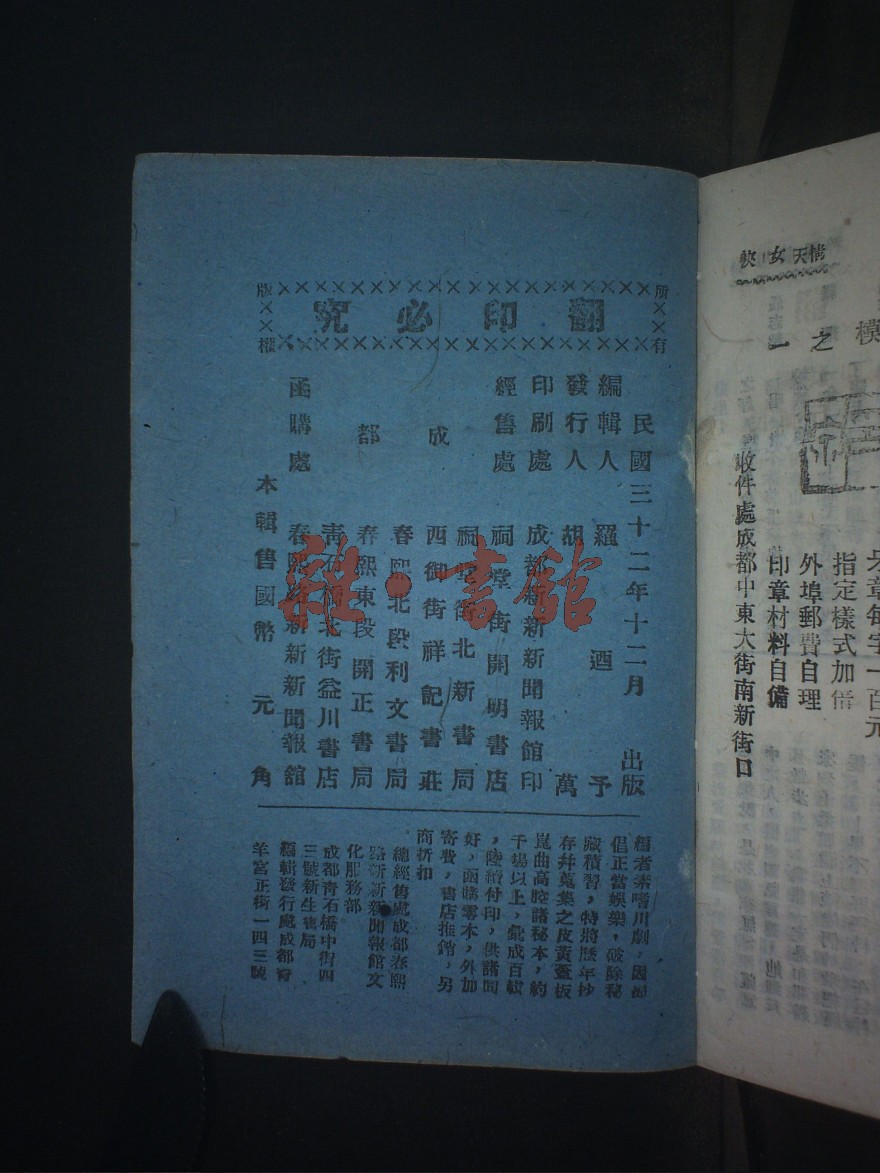 版權所有
翻印必究
民國三十二年十二月 出版
編輯人 羅 迺 予
發行人 胡 萬
印刷處 成都新新新聞報館印
經售處 祠堂街開明書店
祠堂街北新書局
成 西御街祥記書莊
春熙北段利文書局
都 春熙東段開正書局
青石橋北街益川書店
函購處 春熙路新新新聞報館
本輯售國幣 元 角
編者素嗜川劇,因為
倡正當娛樂,破除秘
藏積習,特將歷年抄
存并蒐集之皮黃蓋板
崑曲高腔諸秘本,約
千場以上,彙成百輯
,陸續付印,供諸同
好,函購零本,外加
寄費,書店推銷,另
商折扣
總經售處成都春熙
路新新新聞報館文
化服務部
成都青石橋中街四
三號新生書局
編輯發行處成都青
羊宮正街一四三號
雜·書館
情天女俠
模
之一
每字一百元
指定樣式加倍
外埠郵費自理
印章材料自備
收件處成都中東大街南新街口